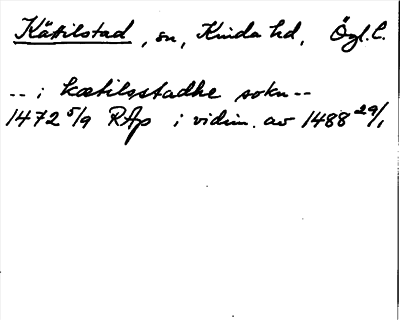 Kättilstad, sn, Kinda hd, Ögl.l.
-- i kætilsstadhe sokn --
1472 5/9 RAp i vidim. av 1488 29/1